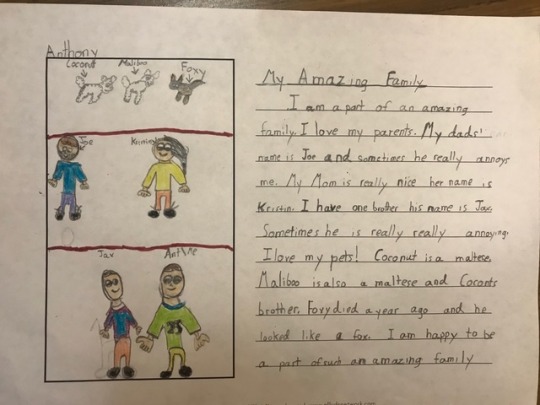 Anthony
Coconut
Maliboo
Foxy
Joe
Jax
Ant/Me
25
My Amazing Family
I am a part of an amazing
family. I love my parents. My dads'
name is Joe and sometimes he really annoys
me. My Mom is really nice her name is
Kristin. I have one brother his name is Jax.
Sometimes he is really really annoying.
I love my pets! Coconut is a maltese.
Maliboo is also a maltese and Coconts
brother. Foxy died a year ago and he
looked like a fox. I am happy to be
a part of such am amazing family